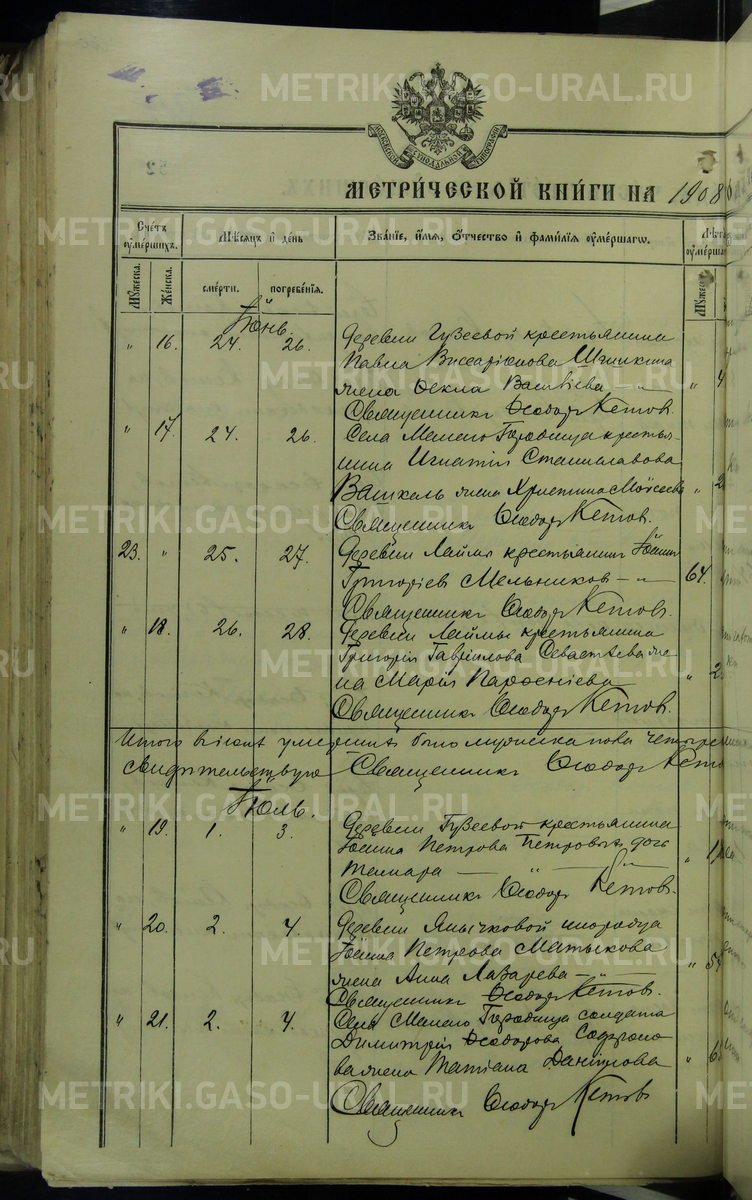 МЕТРИ́ЧЕСКОЙ КНИ́ГИ НА 1908
Счетъ оуме́ршихъ.
Мѣсяцъ и день
Зва́нїе, и҆́мя, ѻ҆́тчество и҆ фами́лїя оуме́ршагѡ.
Мꙋжеска.
Же́нска.
сме́рти.
погребе́нїя.
Мꙋжеск
Іюнь.
" 16. 24. 26. Деревни Гузеевой крестьянина
Павла Виссаріонова Шишкина
жена Ѳекла Васильева "
Священникъ Ѳеодоръ Кетовъ.
" 17. 24. 26. Села Малаго Городища крестья-
нина Игнатія Станиславова
Вашкель жена Христина Моисеева "
Священникъ Ѳеодоръ Кетовъ.
23. " 25. 27. Деревни Лаймы крестьянинъ Іоаннъ
Григоріевъ Мельниковъ 64.
Священникъ Ѳеодоръ Кетовъ.
" 18. 26. 28. Деревни Лаймы крестьянина
Григорія Гавріилова Севастѣева же-
на Марія Парѳеніева "
Священникъ Ѳеодоръ Кетовъ.
Итого въ іюнѣ умершихъ было мужеска пола четыре
Свидѣтельствую Священникъ Ѳеодоръ Кето
Іюль.
" 19. 1. 3. Деревни Гузеевой крестьянина
Іоанна Петрова Петровыхъ дочь
Тамара "
Священникъ Ѳеодоръ Кетовъ.
" 20. 2. 4. Деревни Янычковой инородца
Іоанна Петрова Матыкова
жена Анна Лазарева "
Священникъ Ѳеодоръ Кетовъ.
" 21. 2. 4. Села Малаго Городища солдата
Димитрія Ѳеодорова Софроно
ва жена Татіана Даніилова "
Священникъ Ѳеодоръ Кетовъ
METRIKI.GASO-URAL.RU